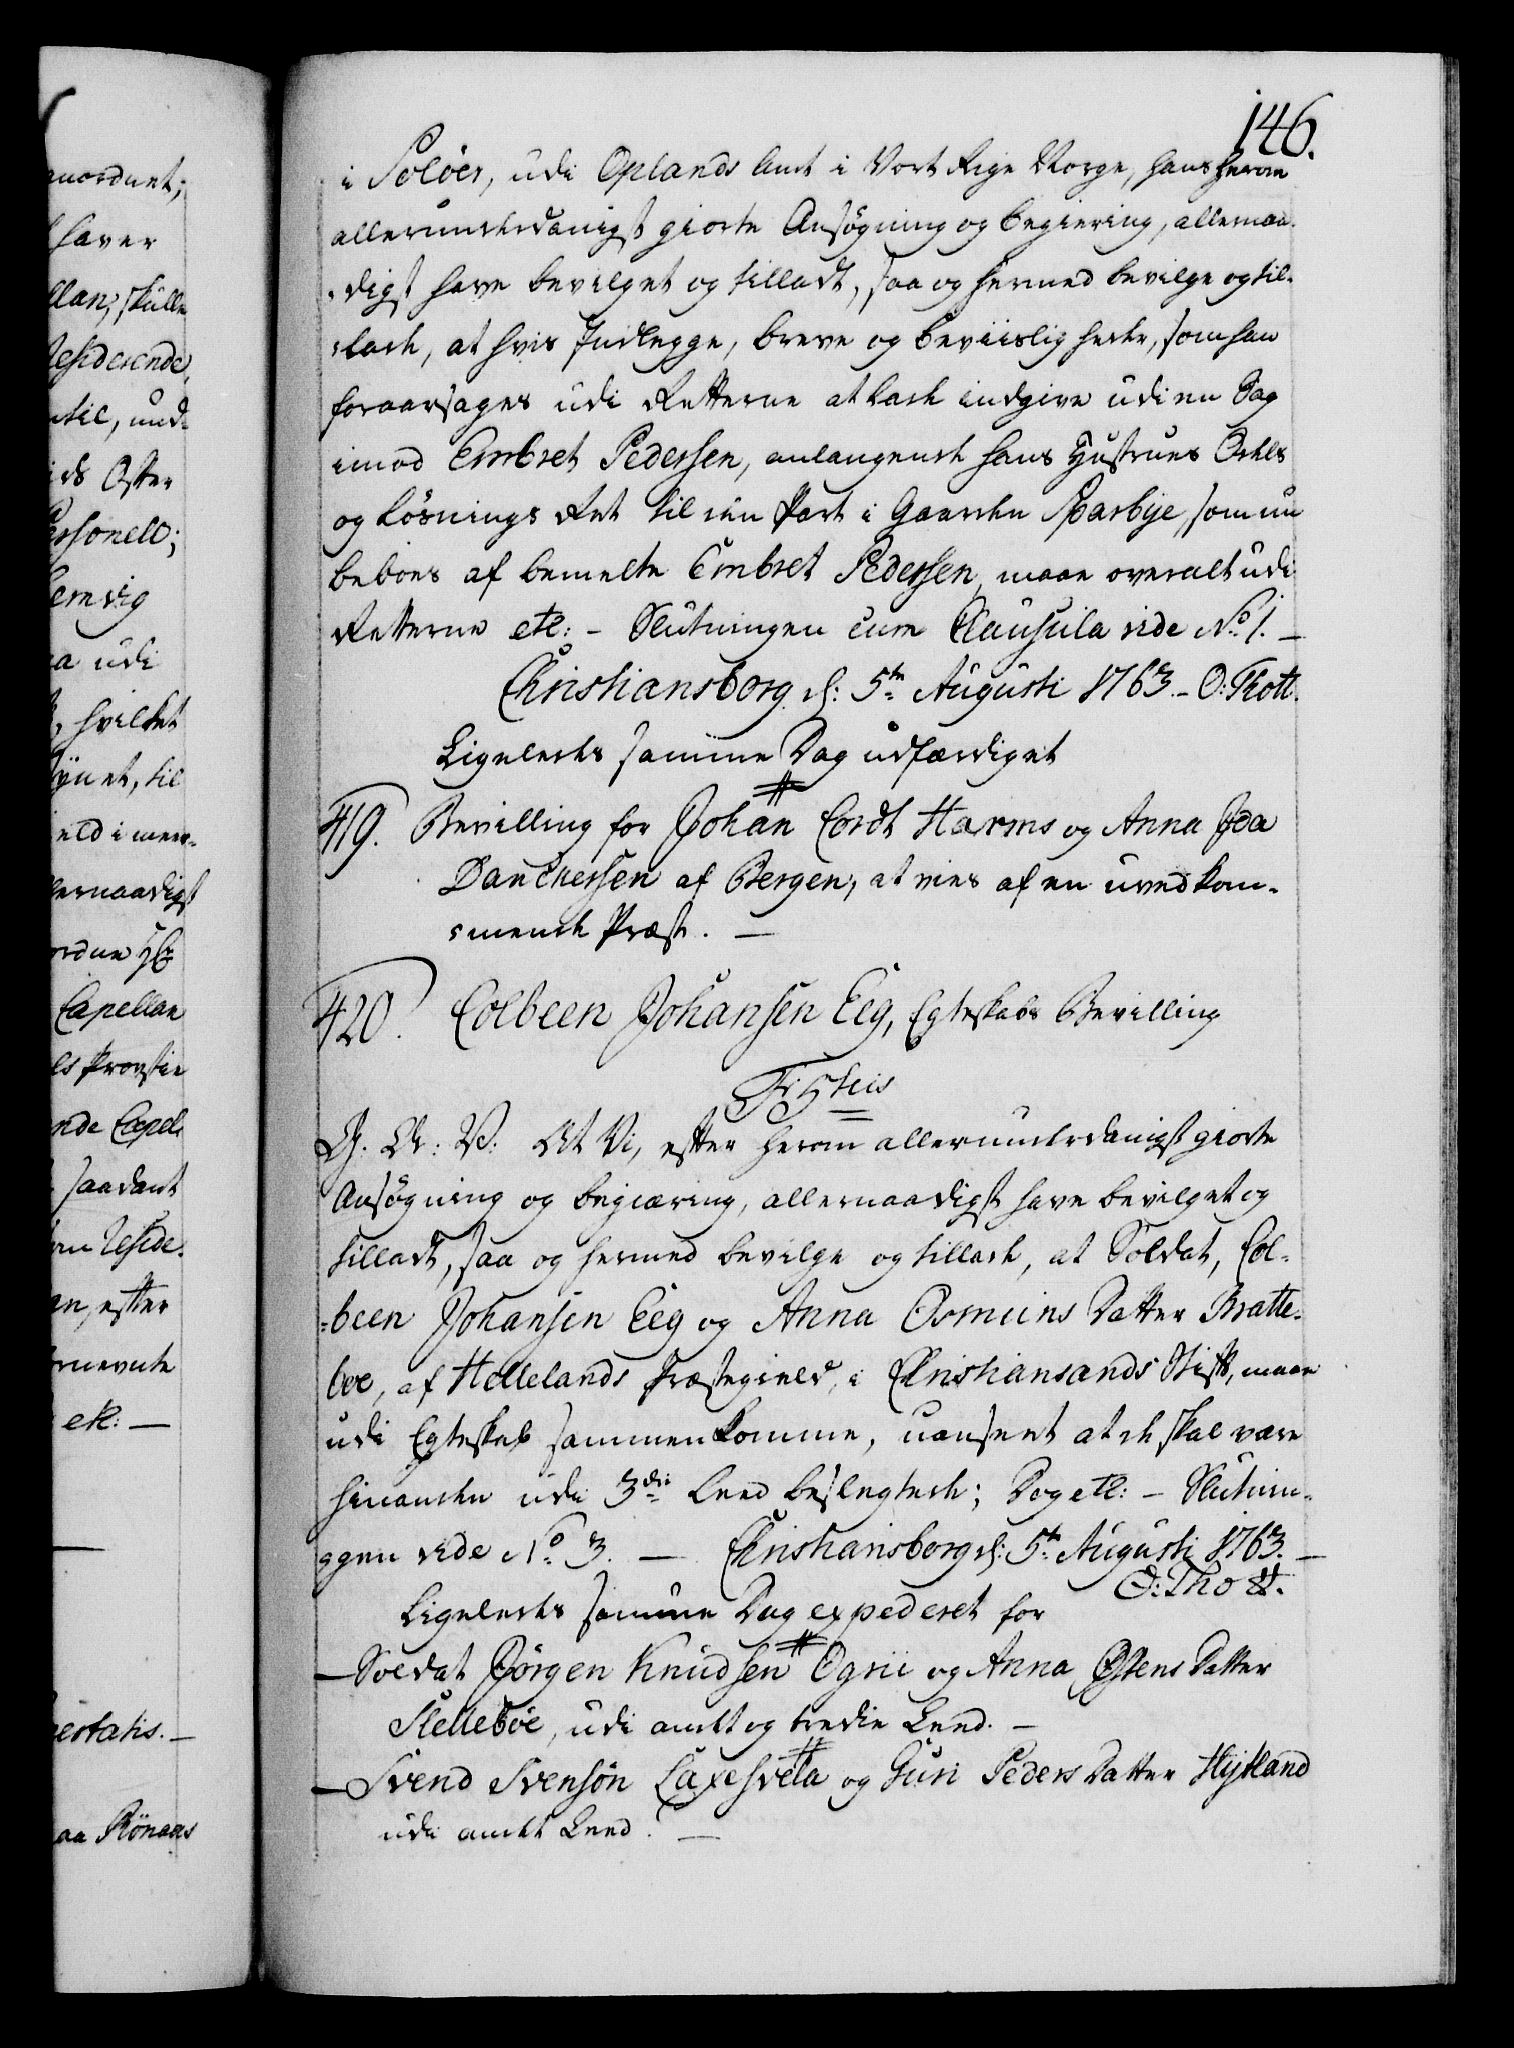 146.
i Soløer, udi Oplands Amt i Vort Rige Norge, hans herom
allerunderdanigst giorte Ansøgning og begiering, allernaa-
digst have bevilget og tilladt, saa og hermed bevilge og til-
lade, at hvis Indlegge, breve og beviisligheder, som han
foraarsages udi Retterne at lade indgive udi en Sag
imod Embret Pedersen, anlangende hans Hustrues Odels
og Løsnings Ret til een Part i Gaarden Noarbye, som nu
beboes af bemelte Embret Pedersen, maae overalt udi
Retterne etc: - Slutningen cum Clausula vide No. 1. -
Christiansborg d: 5te Augusti 1763. - O: Thott.
Ligeledes samme Dag udfærdiget
419. Bevilling for Johan Cordt Harms og Anna Ida
Danckersen af Bergen, at vies af en uvedkom-
mende Præst. -
420. Colbeen Johansen Eeg, Egteskabs Bevilling
Gratis
G. A: V: At Vi, efter herom allerunderdanigst giorte
Ansøgning og begiæring, allernaadigst have bevilget og
tilladt, saa og hermed bevilge og tillade, at Soldat, Col-
been Johansen Eeg og Anna Osmuns Datter Bratte-
boe, af Hellelands Præstegield, i Christiansands Stift, maae
udi Egteskab sammenkomme, uanseet at de skal være
hinanden udi 3die Leed beslegtede; Dog etc: - Slutnin-
gen vide No. 3. - Christiansborg d: 5te Augusti 1763. -
O: Thott.
Ligeledes samme Dag expederet for
- Soldat Jørgen Knudsen Ogrii og Anna Østens Datter
Slettebøe, udi andet og tredie Leed. -
- Svend Svensøn Laxesvela og Guri Peders Datter Hytland
udi andet Leed. -